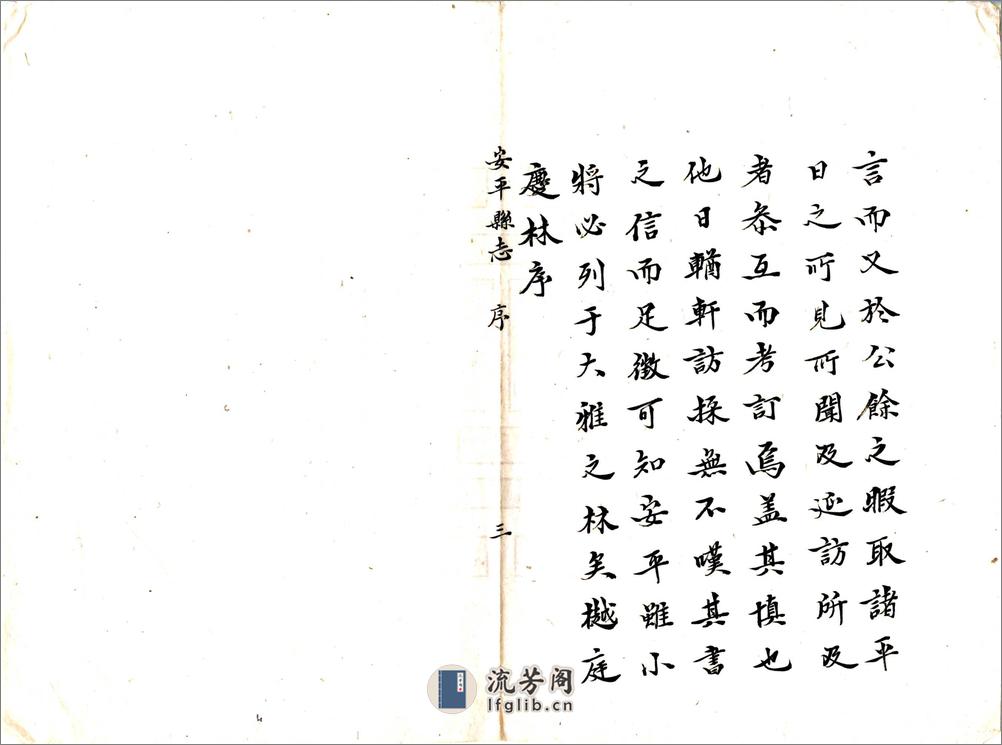 言而又於公餘之暇取諸平
日之所見所聞及延訪所及
者叅互而考訂焉盖其慎也
他日輶軒訪採無不嘆其書
之信而足徵可知安平雖小
將必列于大雅之林矣樾庭
慶林序
安平縣志 序 三
流芳阁
lfglib.cn